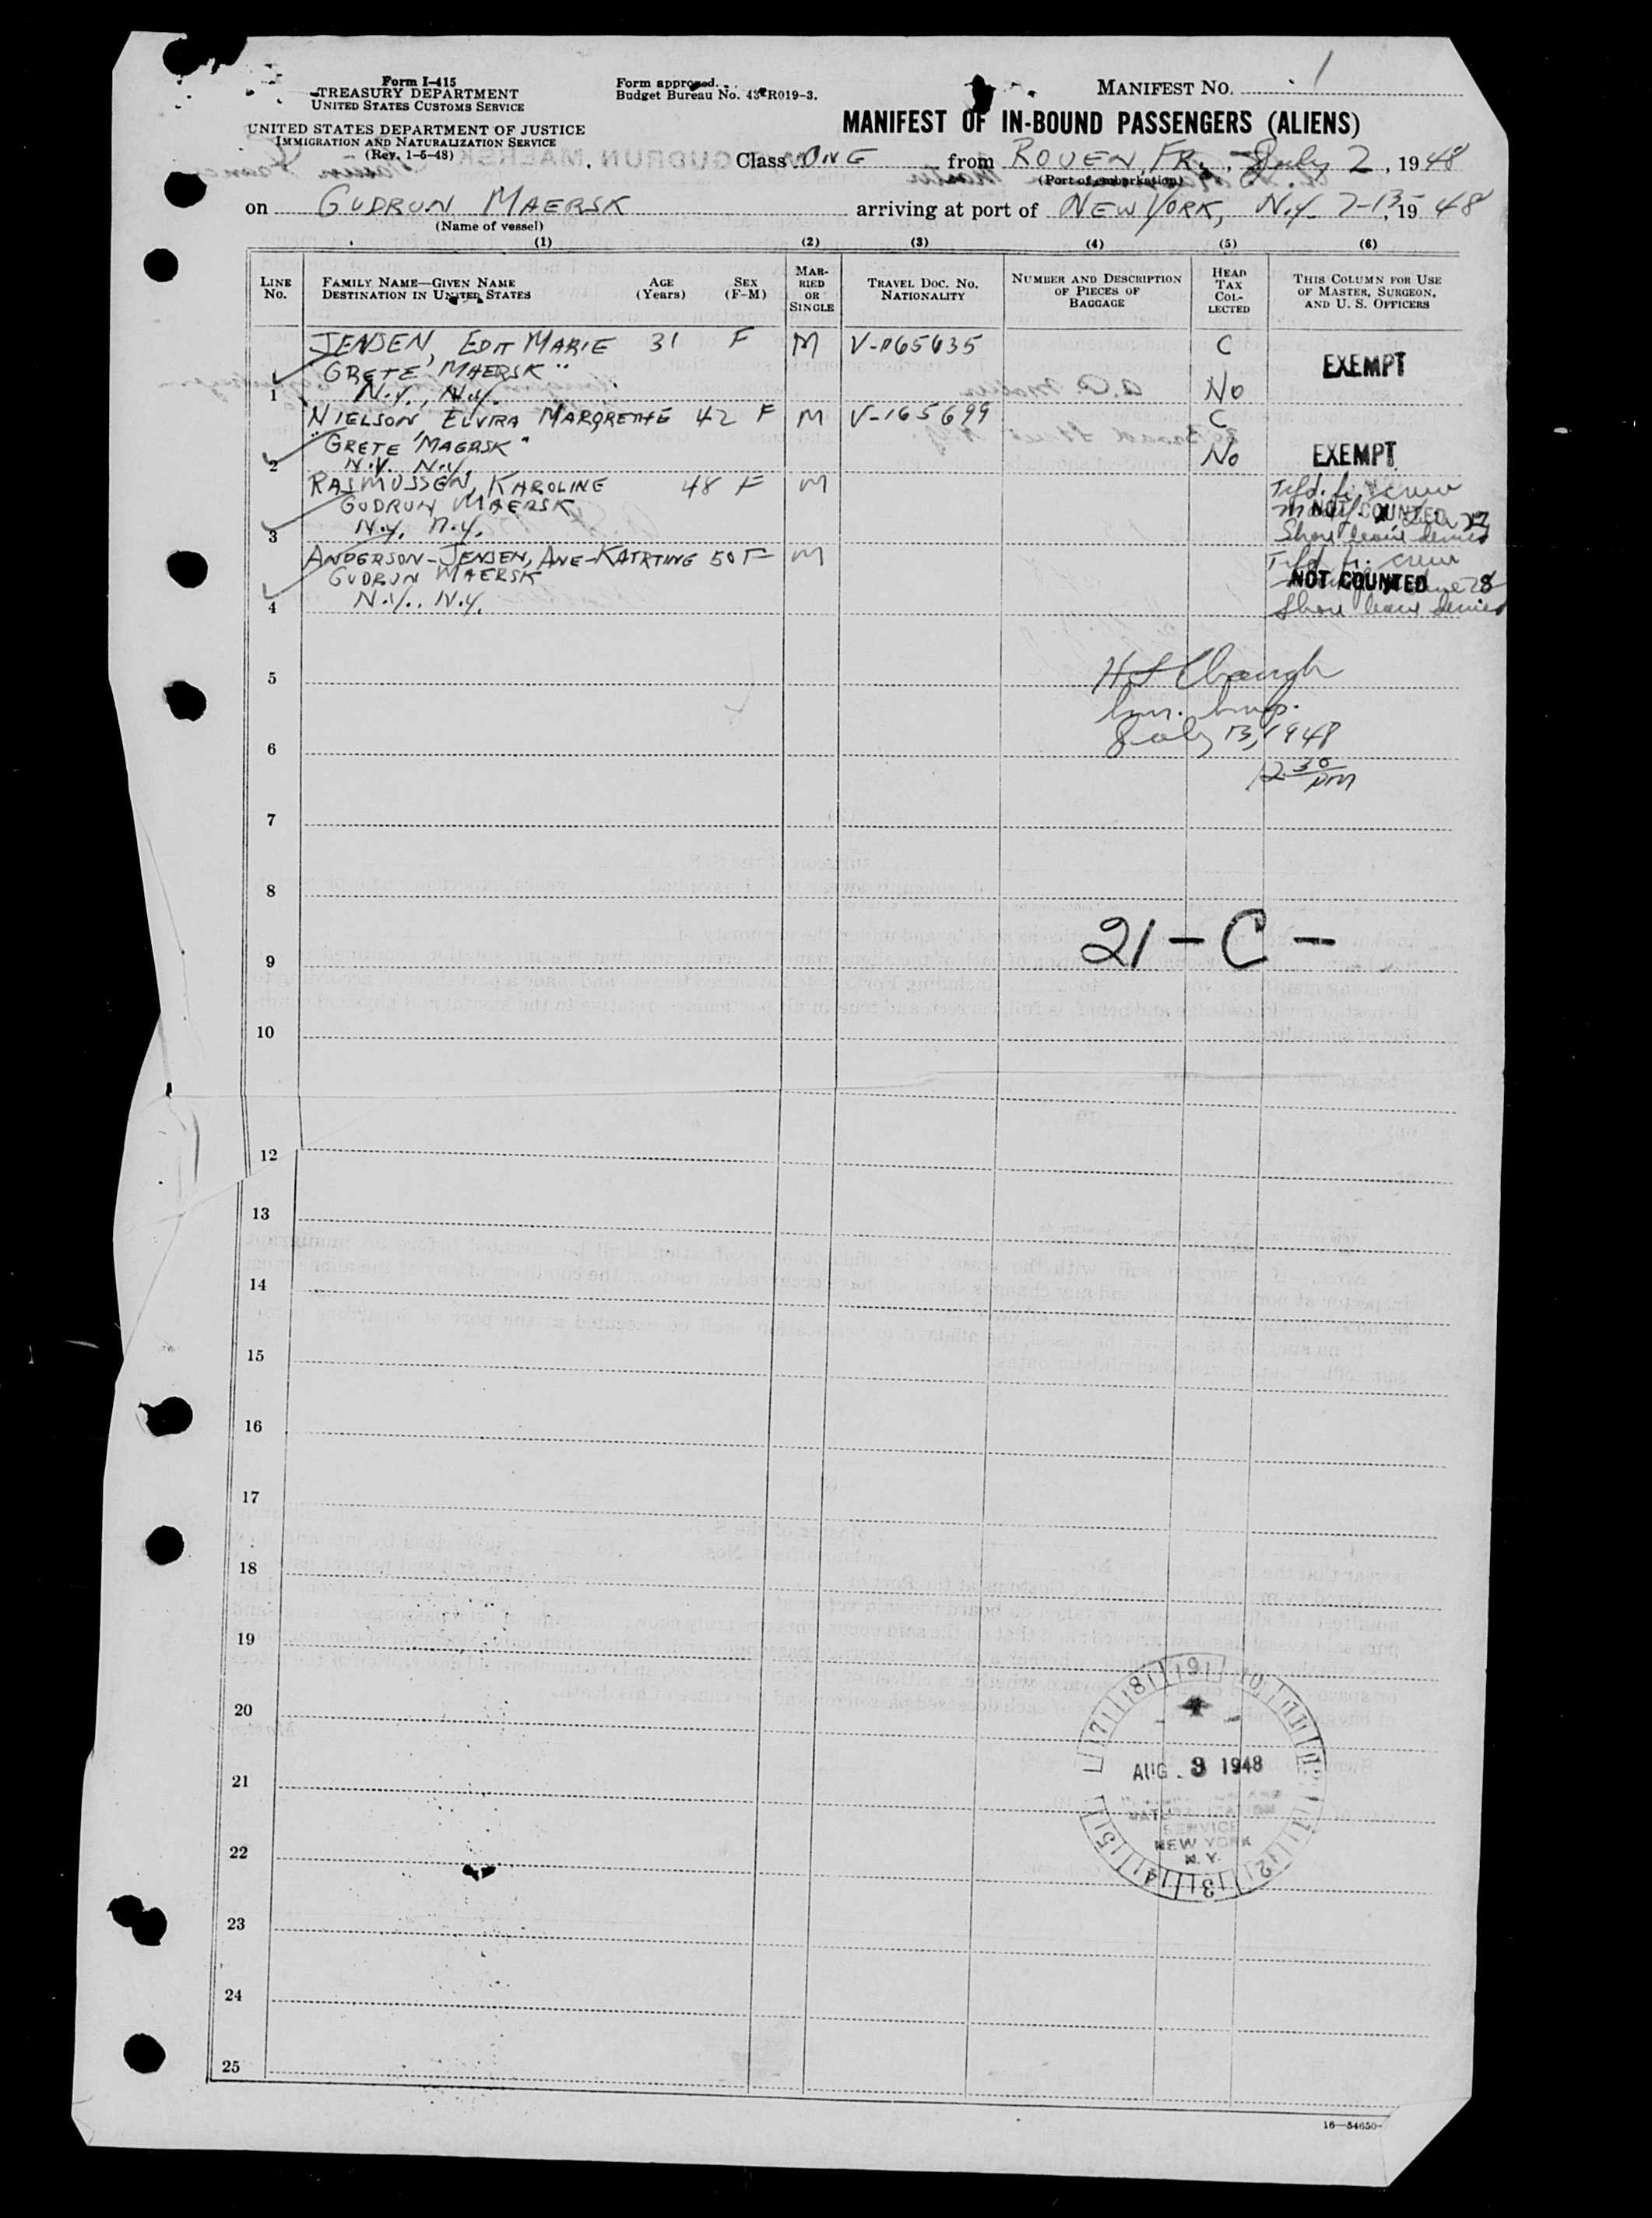 Form I-415
TREASURY DEPARTMENT
UNITED STATES CUSTOMS SERVICE
UNITED STATES DEPARTMENT OF JUSTICE
IMMIGRATION AND NATURALIZATION SERVICE
(Rev. 1-5-48)
Form approved.
Budget Bureau No. 43-R019-3.
MANIFEST NO. 1
MANIFEST OF IN-BOUND PASSENGERS (ALIENS)
Class ONE from ROUEN, FR., July 2, 1948
(Port of embarkation)
on GUDRUN MAERSK arriving at port of NEW YORK, N.Y. 7-13, 1948
(Name of vessel)
(1) (2) (3) (4) (5) (6)
LINE No.
FAMILY NAME—GIVEN NAME
DESTINATION IN UNITED STATES
AGE (Years)
SEX (F-M)
MARRIED OR SINGLE
TRAVEL DOC. NO.
NATIONALITY
NUMBER AND DESCRIPTION OF PIECES OF BAGGAGE
HEAD TAX COLLECTED
THIS COLUMN FOR USE OF MASTER, SURGEON, AND U. S. OFFICERS
JENSEN, EDIT MARIE 31 F M V-165635 C
"GRETE MAERSK" EXEMPT
1 N.Y., N.Y. No
NIELSON ELVIRA MARGRETHE 42 F M V-165699 C
"GRETE MAERSK" EXEMPT
2 N.Y. N.Y. No
RASMUSSEN, KAROLINE 48 F M Tfd. fr. crew
GUDRUN MAERSK NOT COUNTED
3 N.Y. N.Y. Shore leave denied
ANDERSON-JENSEN, ANE-KATRTING 50 F M Tfd. fr. crew
GUDRUN MAERSK NOT COUNTED
4 N.Y., N.Y. Shore leave denied
5
Imm. Insp.
July 13, 1948
6
12 30 PM
7
8
21 - C -
9
10
12
13
14
15
16
17
18
19
20
21
22
23
24
25
AUG 3 1948
SERVICE
NEW YORK
N.Y.
16—54650-